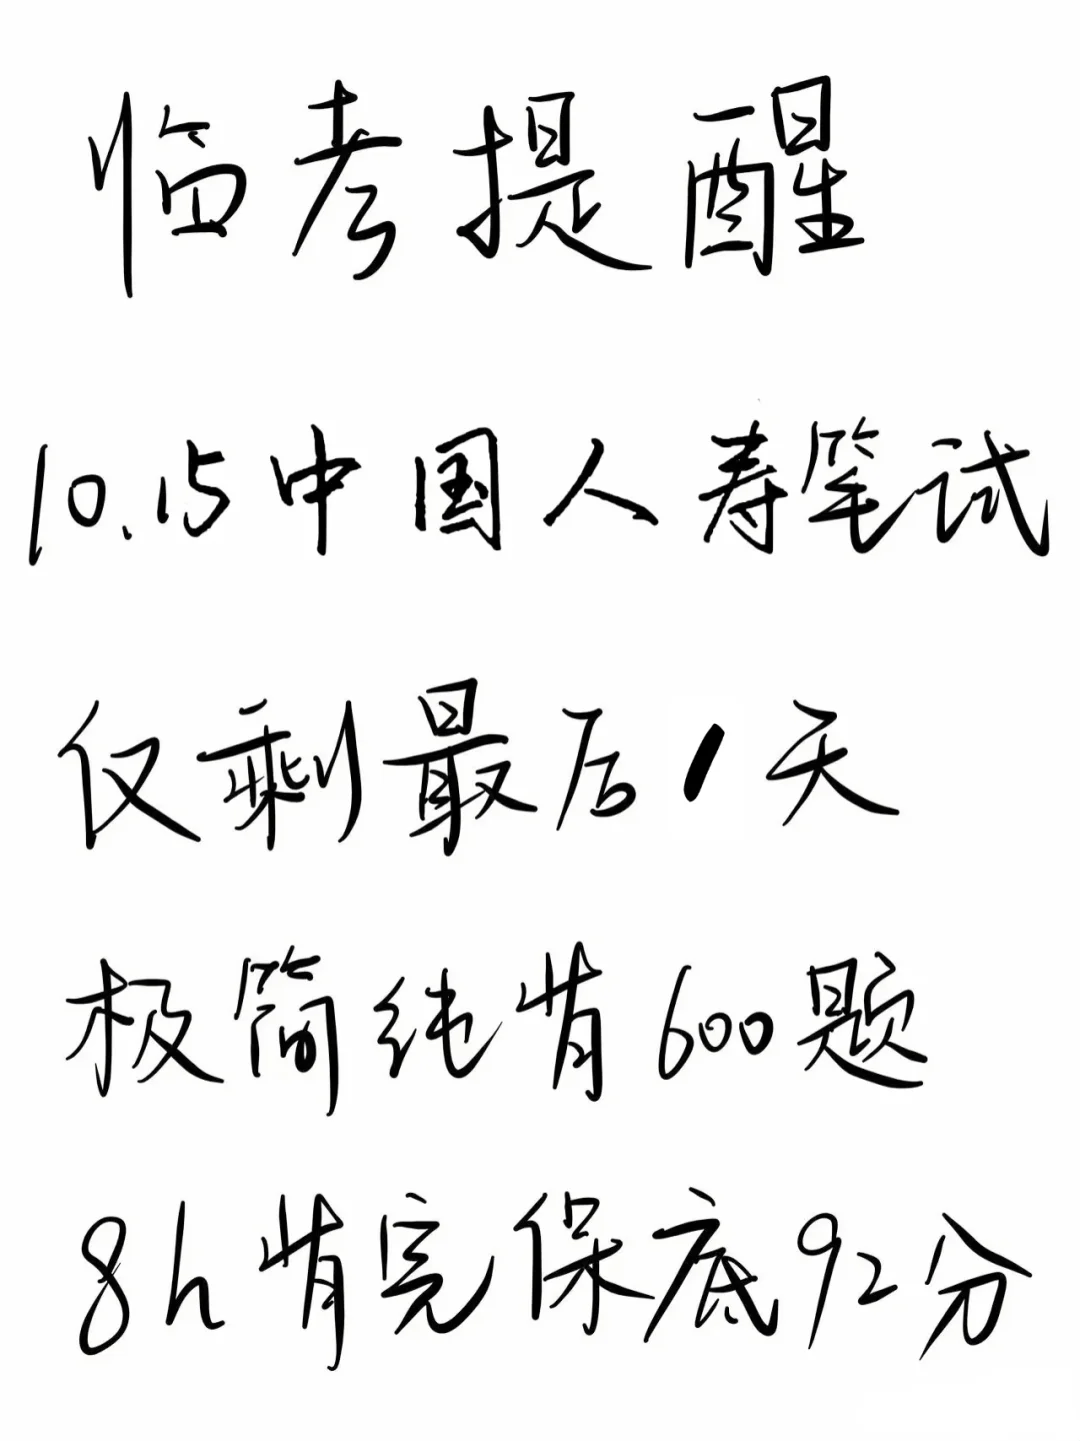 临考提醒
10.15中国人寿笔试
仅剩最后1天
极简纯背600题
8h背完保底92分